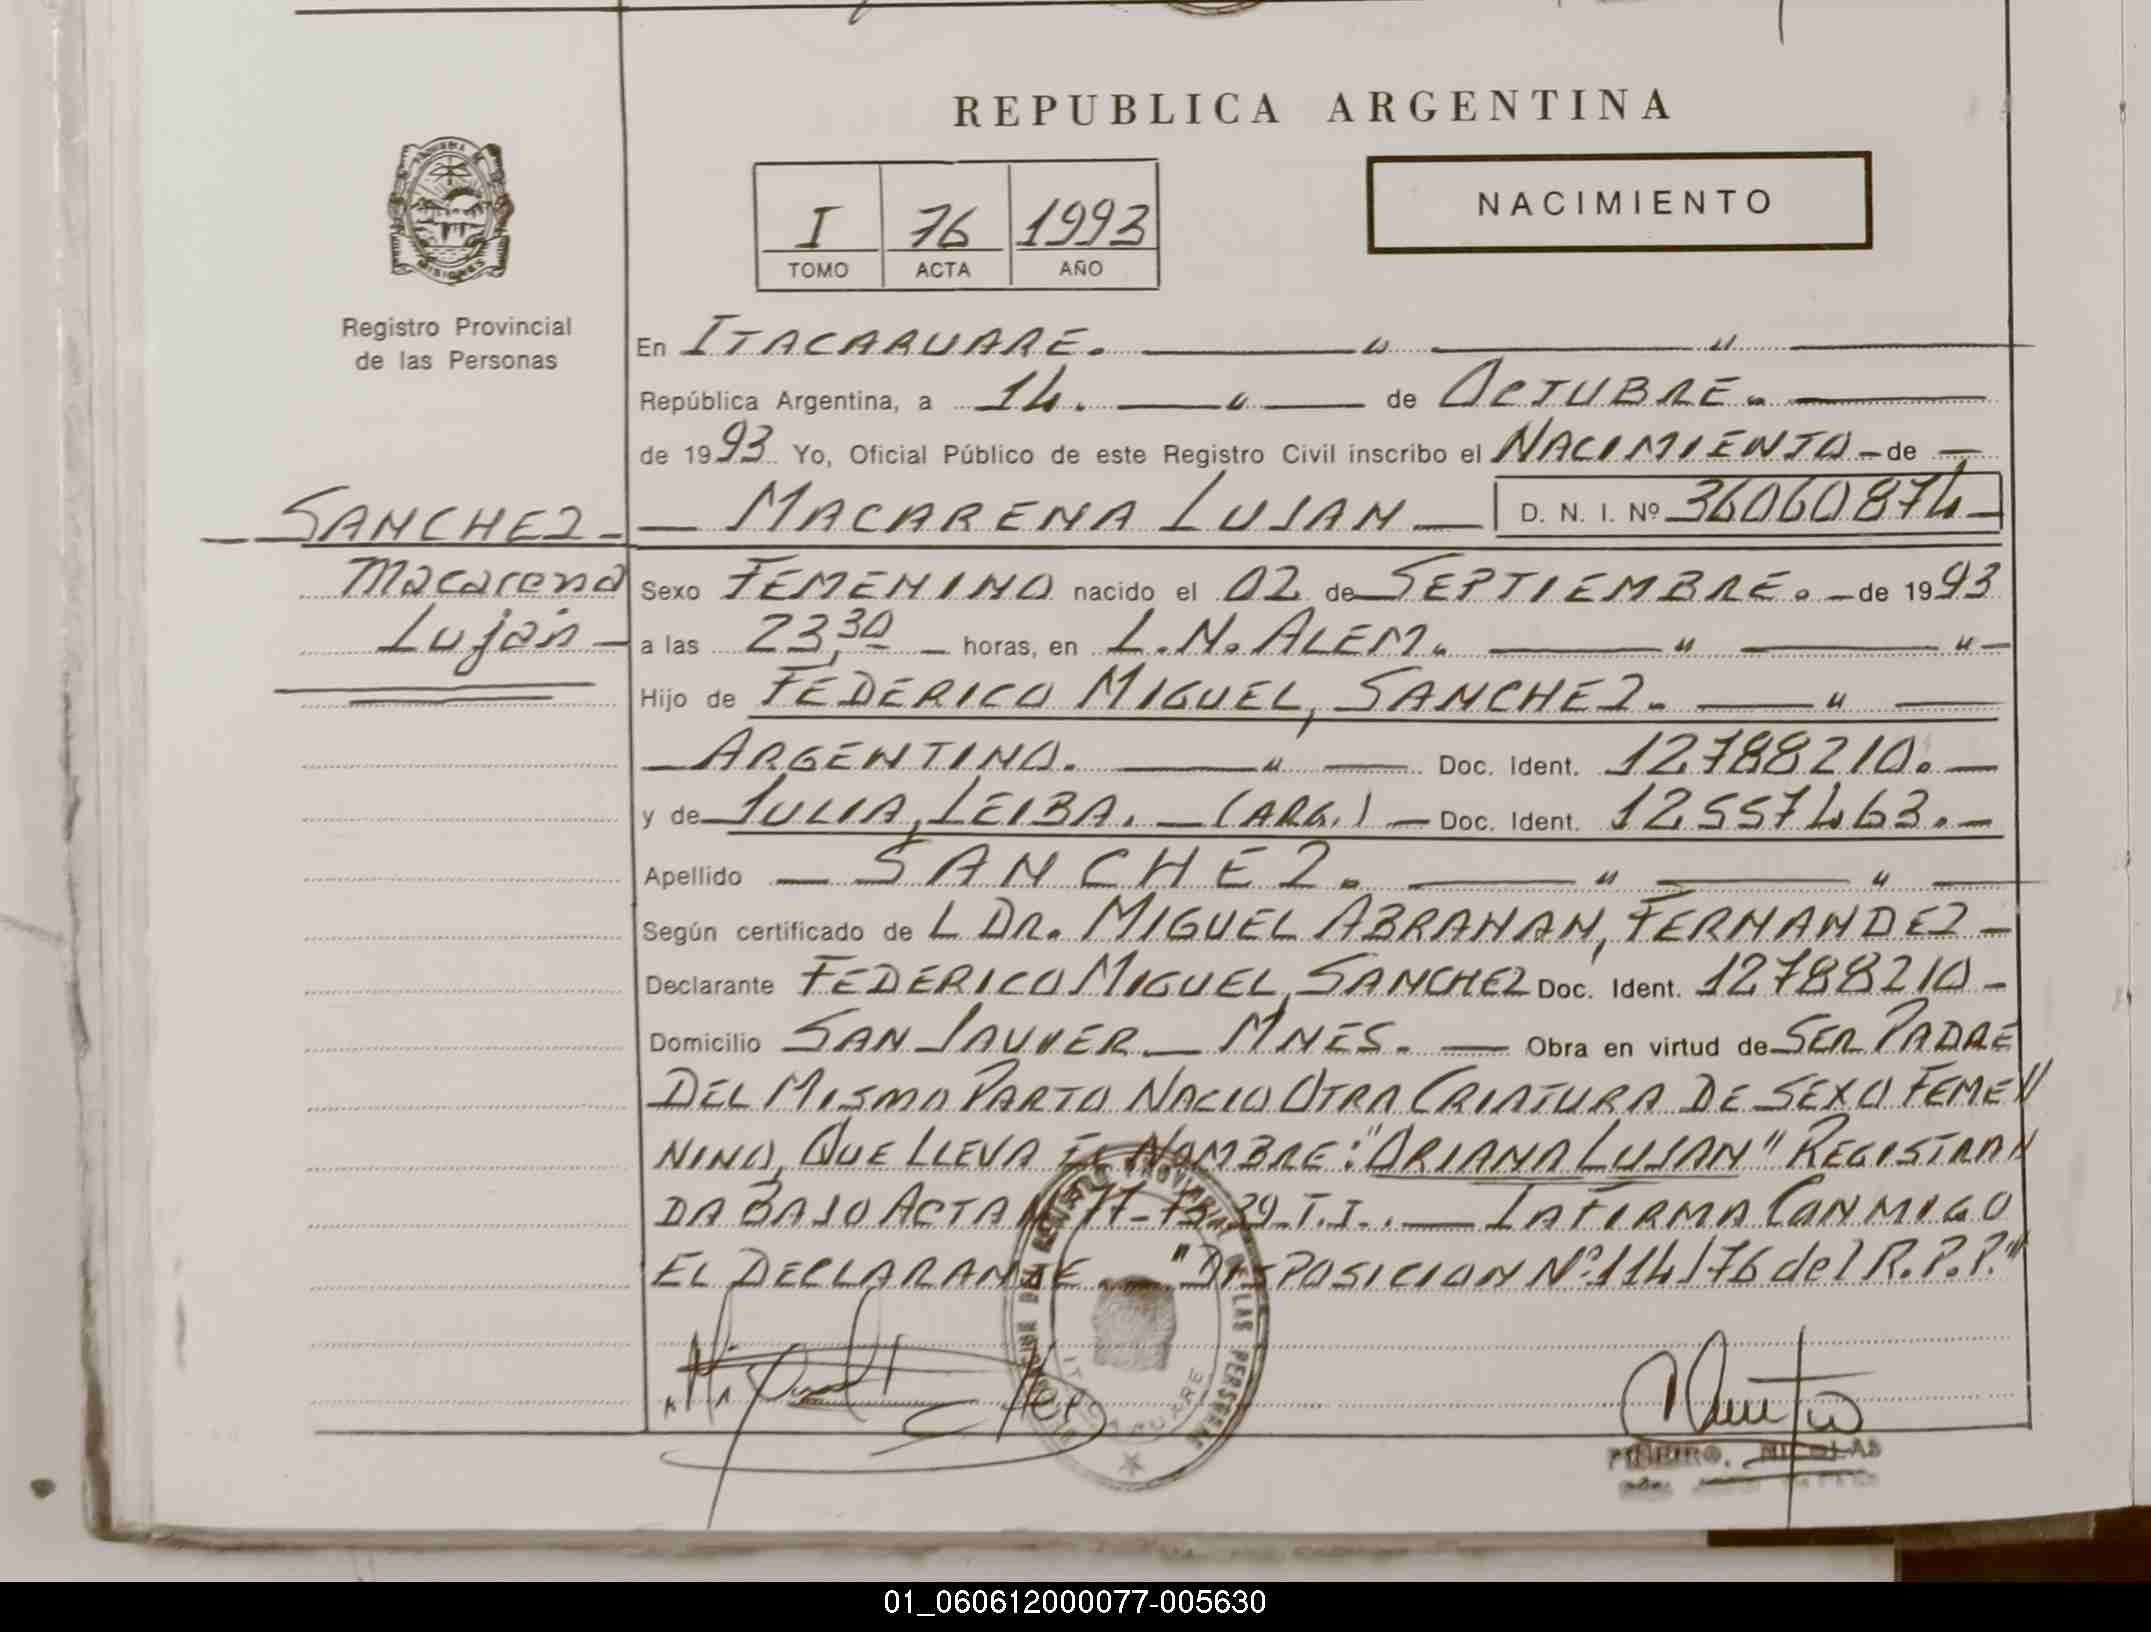 REPUBLICA ARGENTINA
I 76 1993
TOMO ACTA AÑO
NACIMIENTO
MISIONES
Registro Provincial
de las Personas
SANCHEZ
Macarena
Luján
En ITACARUARE.
República Argentina, a 14. de OCTUBRE.
de 1993 Yo, Oficial Público de este Registro Civil inscribo el NACIMIENTO de
MACARENA LUJAN D. N. I. Nº 36060874
Sexo FEMENINO nacido el 02 de SEPTIEMBRE. de 1993
a las 23,30 horas, en L.N. ALEM.
Hijo de FEDERICO MIGUEL, SANCHEZ.
ARGENTINO. Doc. Ident. 12788210.
y de JULIA, LEIBA. (ARG.) Doc. Ident. 12557463.
Apellido SANCHEZ.
Según certificado de L DR. MIGUEL ABRAHAN, FERNANDEZ
Declarante FEDERICO MIGUEL, SANCHEZ Doc. Ident. 12788210
Domicilio SAN JAVIER MNES. Obra en virtud de SER PADRE
DEL MISMO PARTO NACIO OTRA CRIATURA DE SEXO FEME//
NINO, QUE LLEVA EL NOMBRE: "ORIANA LUJAN" REGISTRA//
DA BAJO ACTA Nº 77 39 T.I. LA FIRMA CONMIGO
EL DECLARANTE. "DISPOSICION Nº 114/76 del R.P.P."
ITACARUARE
PIÑEIRO, NICOLAS
01_060612000077-005630